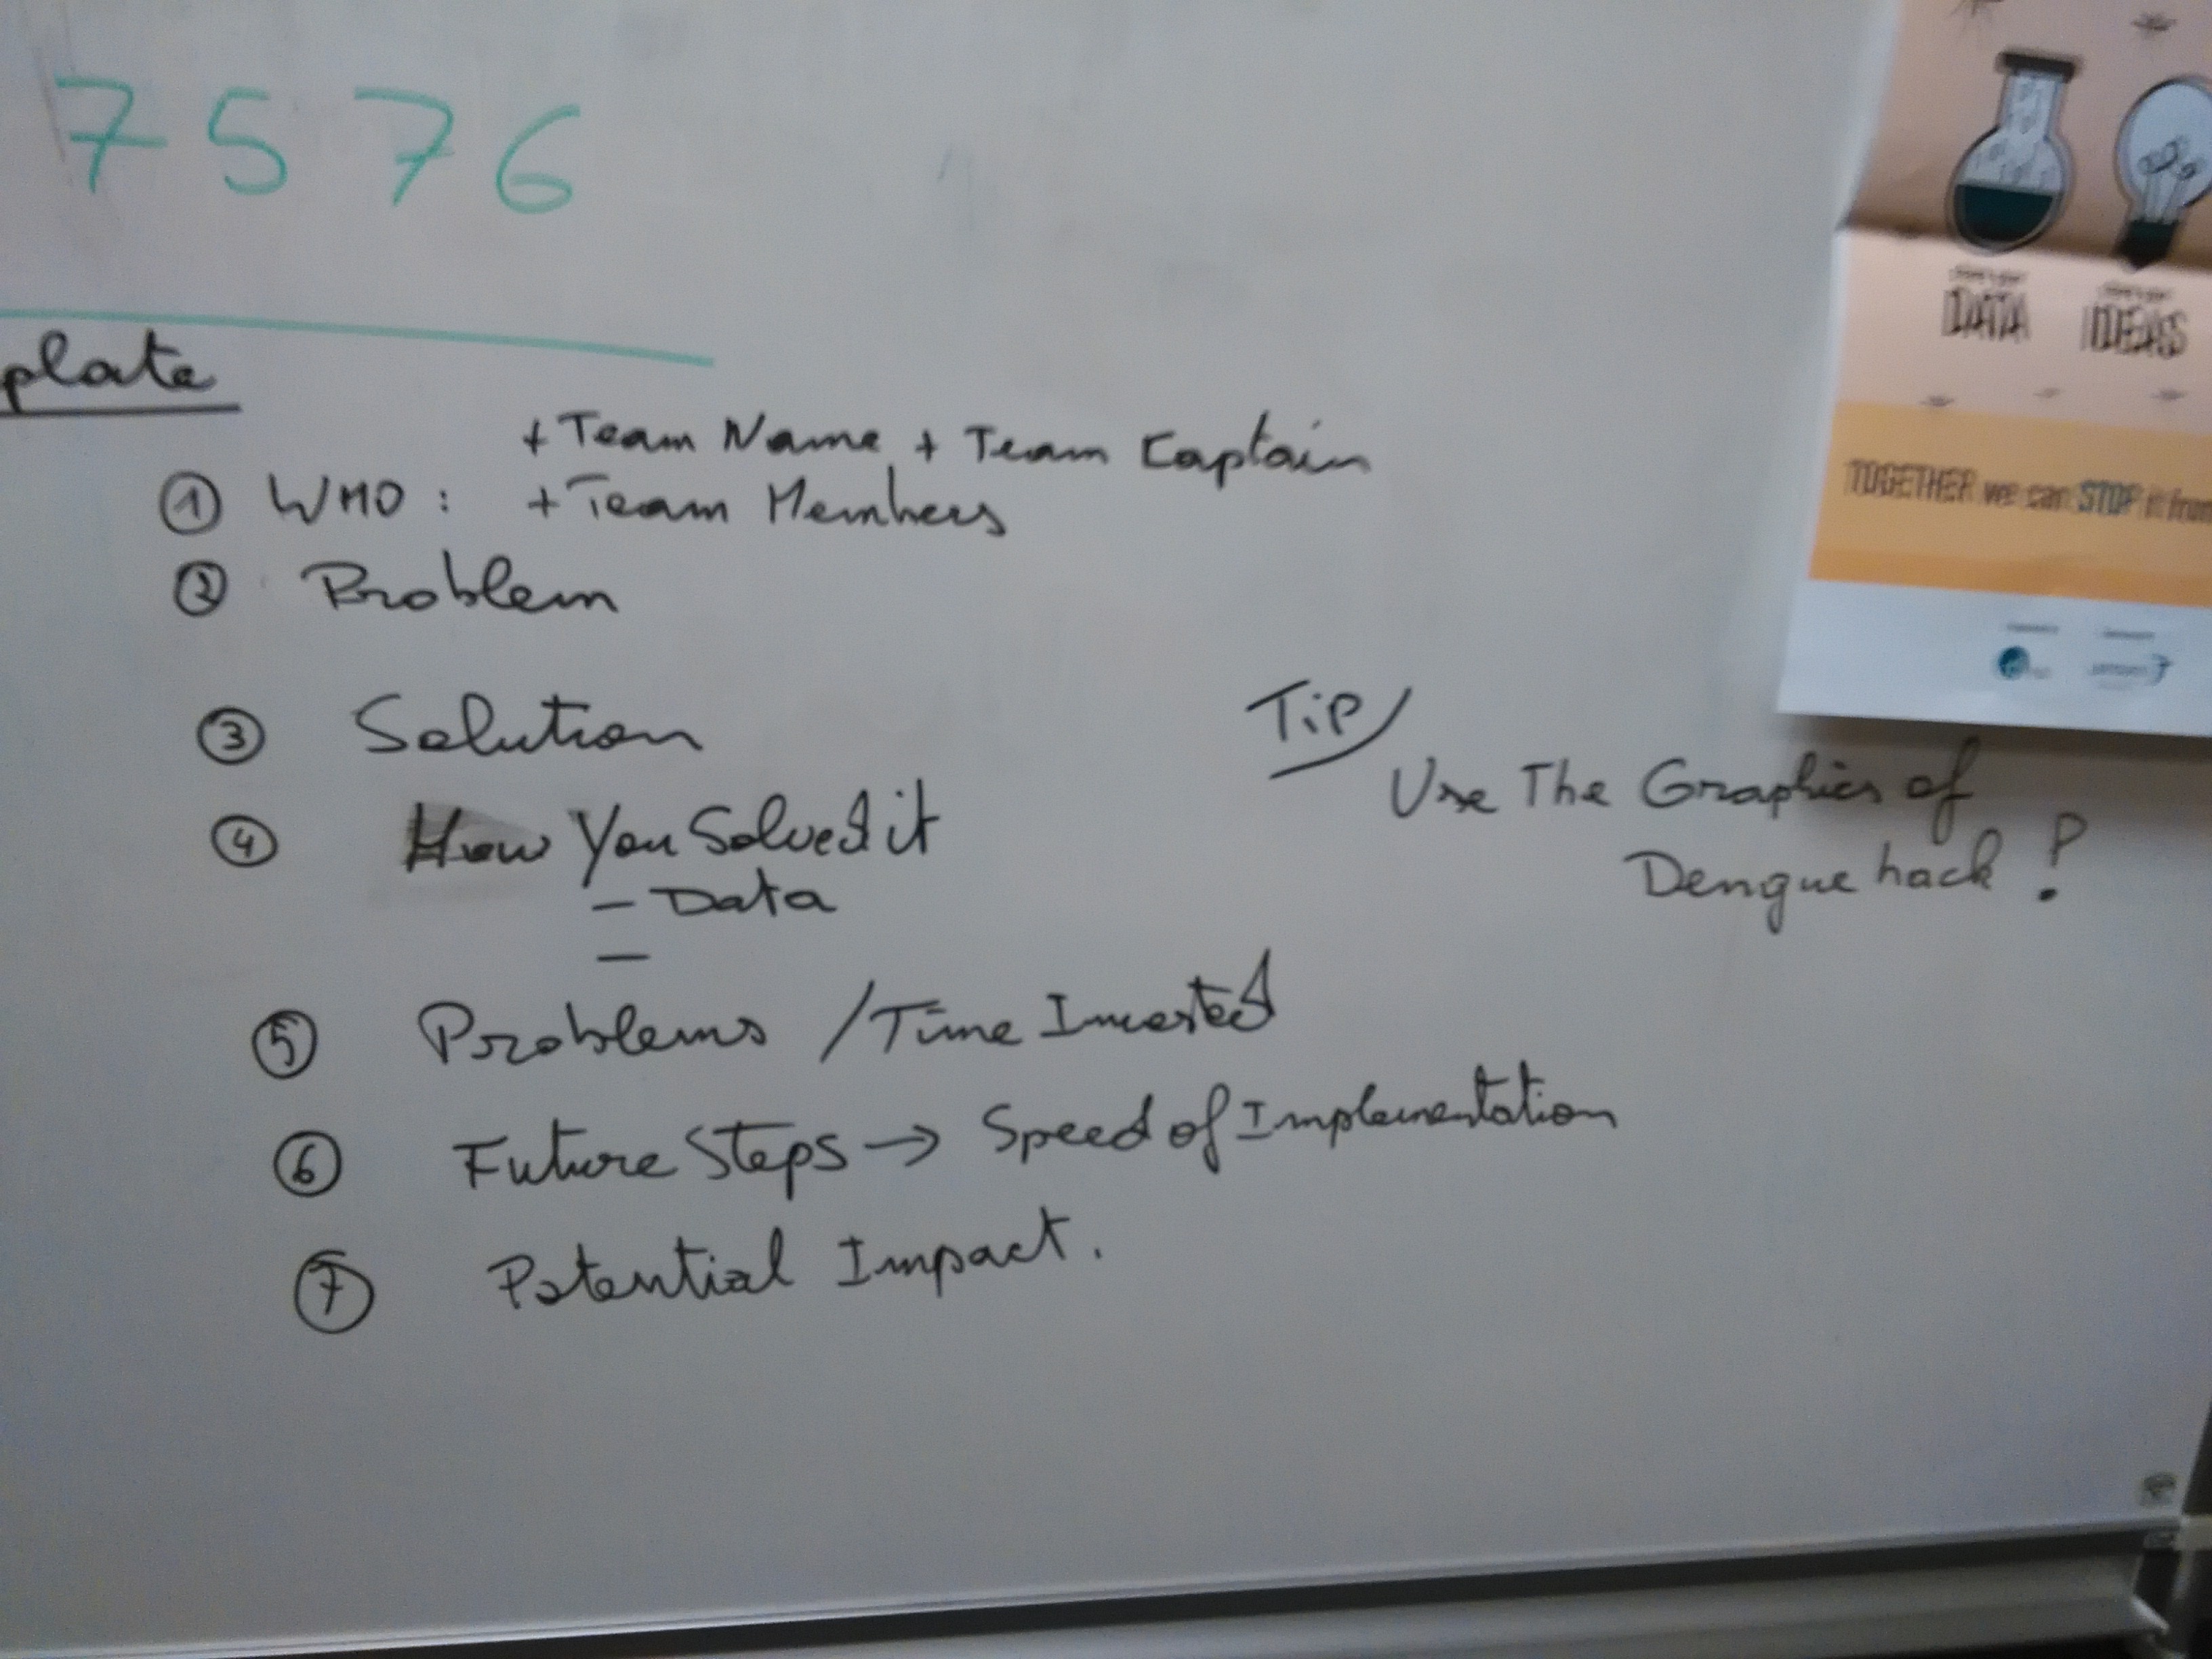 7576
plate
+ Team Name + Team Captain
① WHO: + Team Members
② Problem
③ Solution
④ How You Solved it
- Data
-
⑤ Problems / Time Invested
⑥ Future Steps → Speed of Implementation
⑦ Potential Impact.
Tip
Use The Graphics of
Dengue hack !
DATA IDEAS
TOGETHER we can STOP it